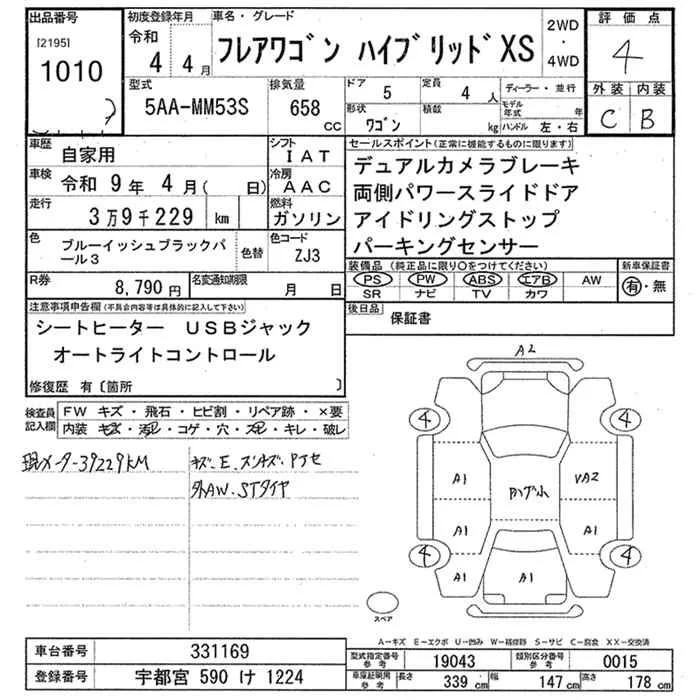 出品番号
[2195]
1010
初度登録年月
令和
4 4月
車名・グレード
フレアワゴン ハイブリッド XS
2WD
・
4WD
評価点
4
外装 内装
C B
型式
5AA-MM53S
排気量
658 CC
ドア
5
定員
4 人
形状
ワゴン
積載
kg
ディーラー・並行
モデル年式 年
ハンドル 左・右
車歴
自家用
シフト
IAT
車検
令和 9年 4月( 日)
冷房
AAC
走行
3万9千229 km
燃料
ガソリン
色
ブルーイッシュブラックパール3
色替
色コード
ZJ3
R券
8,790円
名変通知期限
月 日
セールスポイント(正常に機能するものに限ります)
デュアルカメラブレーキ
両側パワースライドドア
アイドリングストップ
パーキングセンサー
装備品(純正品に限り〇をつけてください)
PS PW ABS エアB AW
SR ナビ TV カワ
新車保証書
有・無
後日品
保証書
注意事項申告欄(不具合内容等は具体的に記入して下さい)
シートヒーター USBジャック
オートライトコントロール
修復歴 有〔箇所 〕
検査員記入欄
FW キズ・飛石・ヒビ割・リペア跡・×要
内装 キズ・汚レ・コゲ・穴・スレ・キレ・破レ
現メーター39229KM
キズ、E、スリキズ、
外AW、STタイヤ
A2
4 4
A1 VA2
A1 A1
4 4
A1 A1
スペア
A-キズ E-エクボ U-凹み W-補修跡 S-サビ C-腐食 XX-交換済
車台番号
331169
登録番号
宇都宮 590 け 1224
型式指定番号 参考
19043
類別区分番号 参考
0015
車庫証明用 参考
長さ
339 cm
幅
147 cm
高さ
178 cm